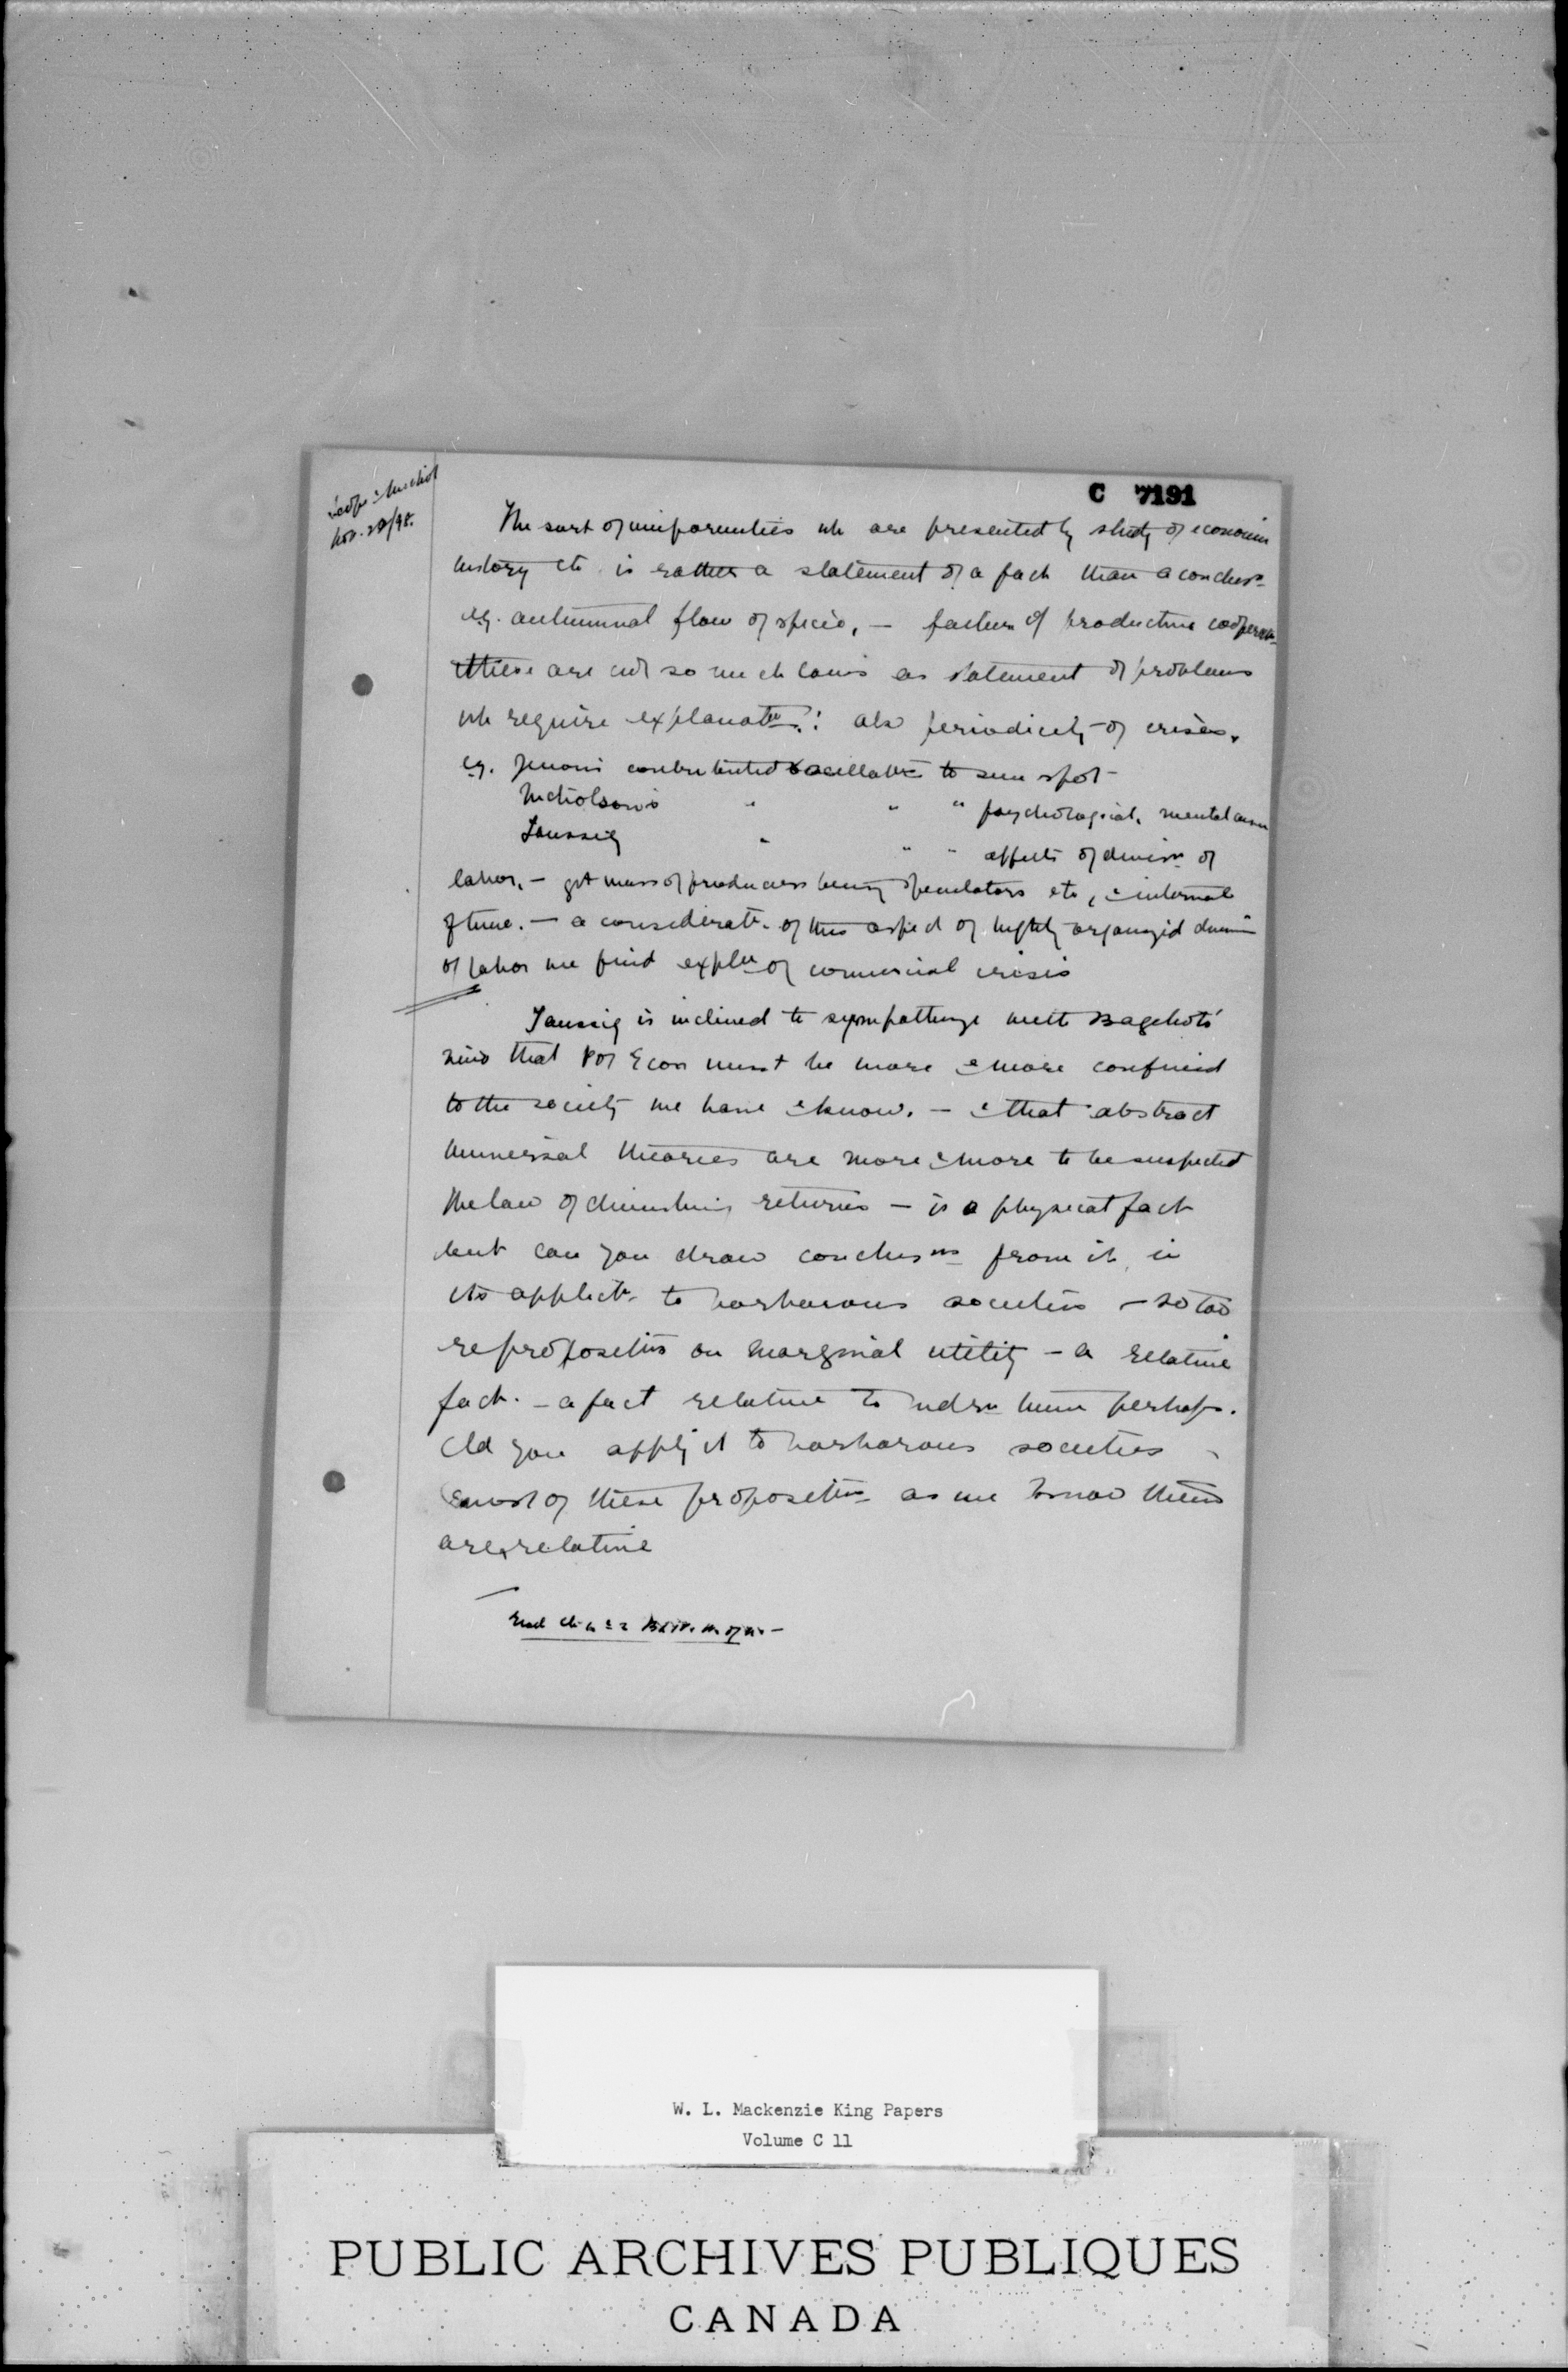 C 7191
Nov. 28/98.
The sort of uniformities wh are presented by study of economic
history etc. is rather a statement of a fact than a conclusn
e.g. autumnal flow of specie, — failure of productive cooperatn
these are not so much laws as statement of problems
wh require explanatn: also periodicity of crises.
e.g. Jevons contributed oscillatn to sun spot
Nicholson's " " " psychological, mental causes
Taussig " " " effects of divisn of
labor, — gt mass of producers being speculators etc, & interval
of time. — a consideratn of this aspect of highly organizd division
of labor we find expln of commercial crisis
Taussig is inclined to sympathize with Bagehots'
view that Pol Econ must be more & more confined
to the society we have & know. — & that abstract
universal theories are more & more to be suspected
The law of diminishing returns — is a physical fact
but can you draw conclusns from it in
its applictn to barbarous societies — so too
re propositns on marginal utility — a relative
fact. — a fact relative to modrn time perhaps.
Cld you apply it to barbarous societies
& most of these propositns as we know them
are relative
W. L. Mackenzie King Papers
Volume C 11
PUBLIC ARCHIVES PUBLIQUES
CANADA